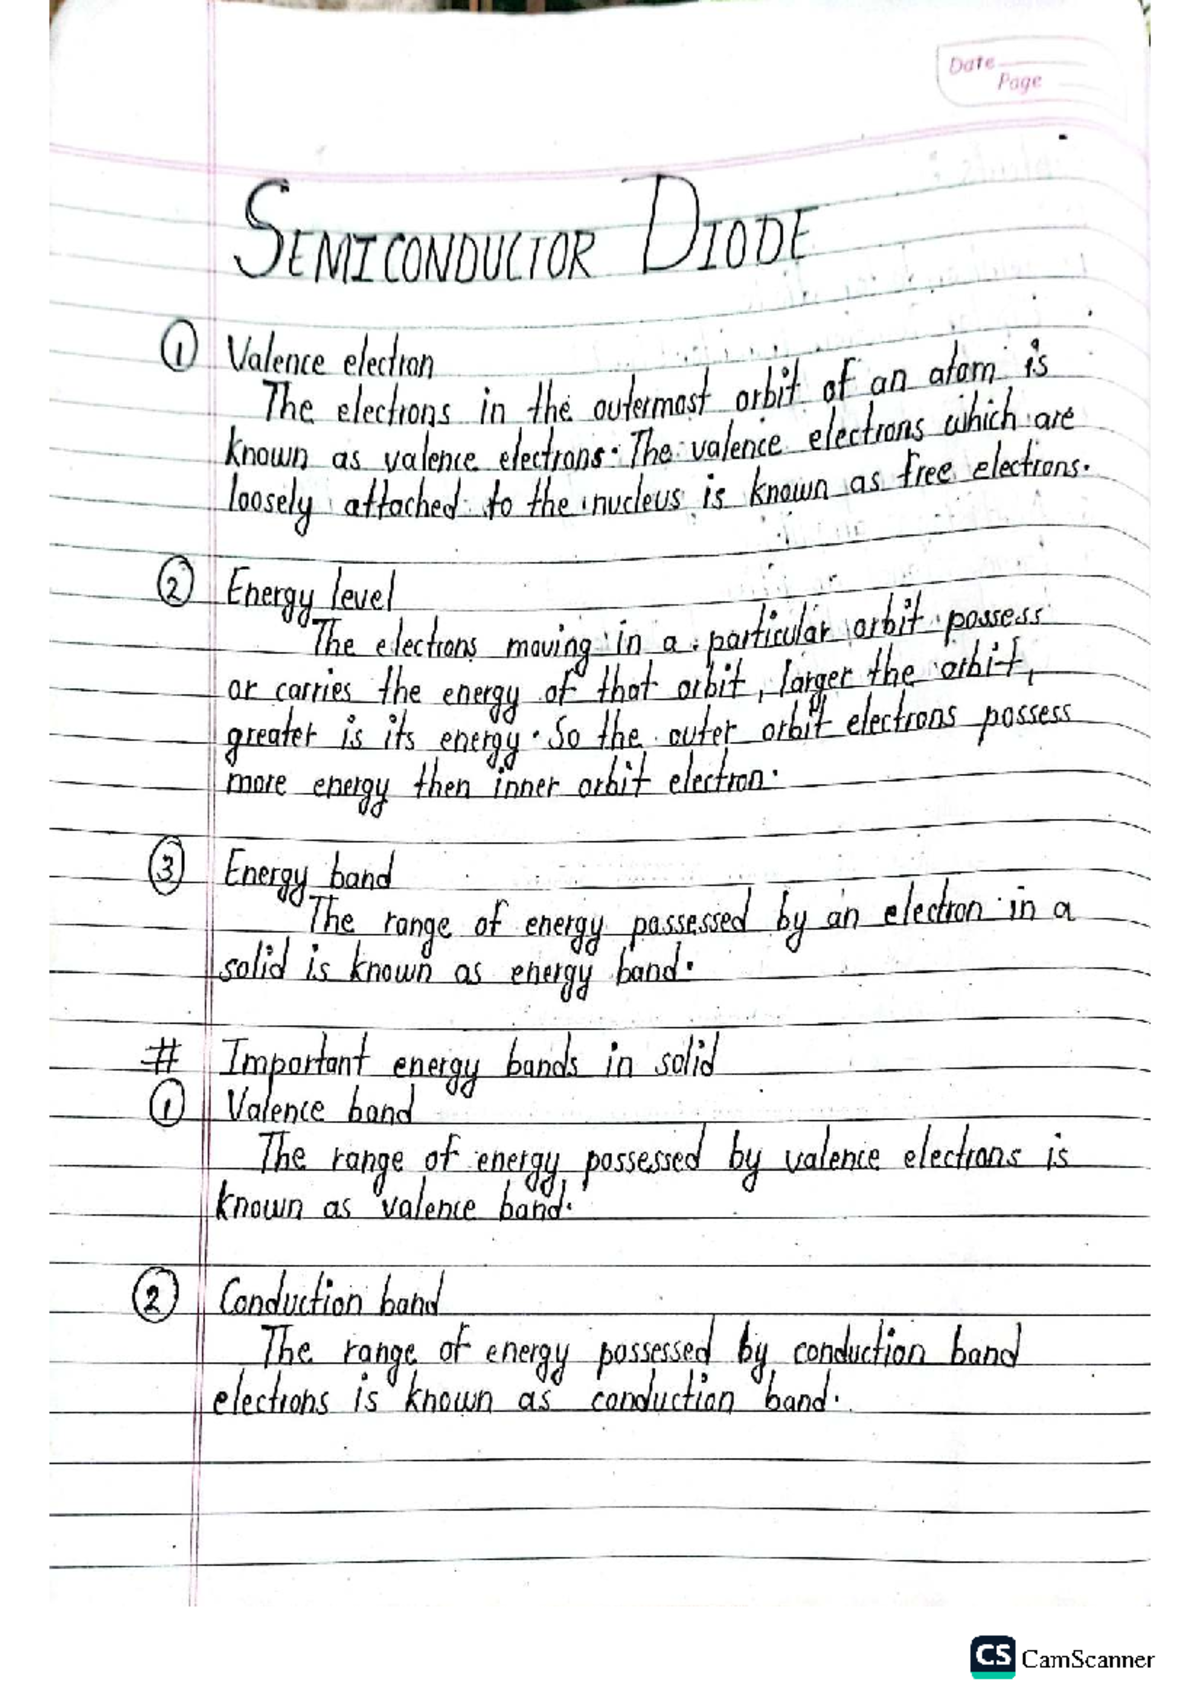 Date
Page
SEMICONDUCTOR DIODE
① Valence electron
The electrons in the outermost orbit of an atom, is
known as valence electrons. The valence electrons which are
loosely attached to the nucleus is known as free electrons.
② Energy level
The electrons moving in a particular orbit possess
or carries the energy of that orbit, larger the orbit,
greater is its energy. So the outer orbit electrons possess
more energy then inner orbit electron.
③ Energy band
The range of energy possessed by an electron in a
solid is known as energy band.
# Important energy bands in solid
① Valence band
The range of energy possessed by valence electrons is
known as valence band.
② Conduction band
The range of energy possessed by conduction band
electrons is known as conduction band.
CS CamScanner